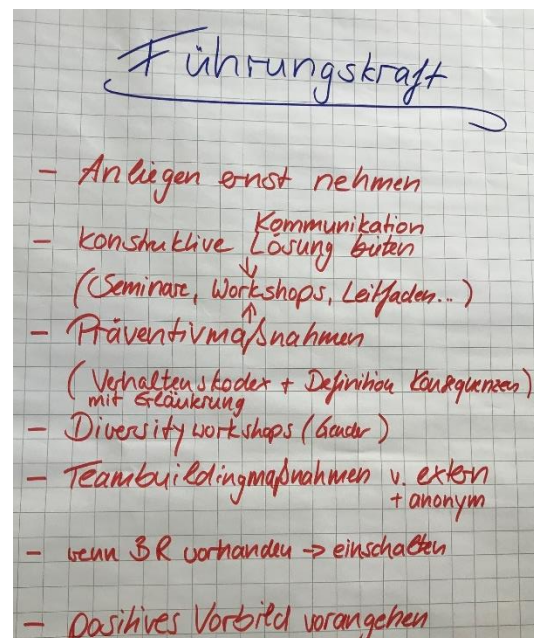 Führungskraft
- Anliegen ernst nehmen
Kommunikation
- konstruktive Lösung bieten
(Seminare, Workshops, Leitfaden...)
- Präventivmaßnahmen
(Verhaltenskodex + Definition Konsequenzen)
mit Erläuterung
- Diversityworkshops (Gender)
- Teambuildingmaßnahmen v. extern
+ anonym
- wenn BR vorhanden → einschalten
- positives Vorbild vorangehen